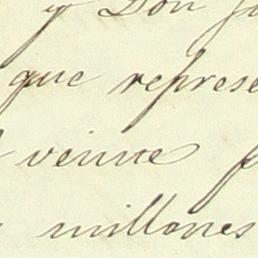 y Don Jo
que represe
veinte
millones